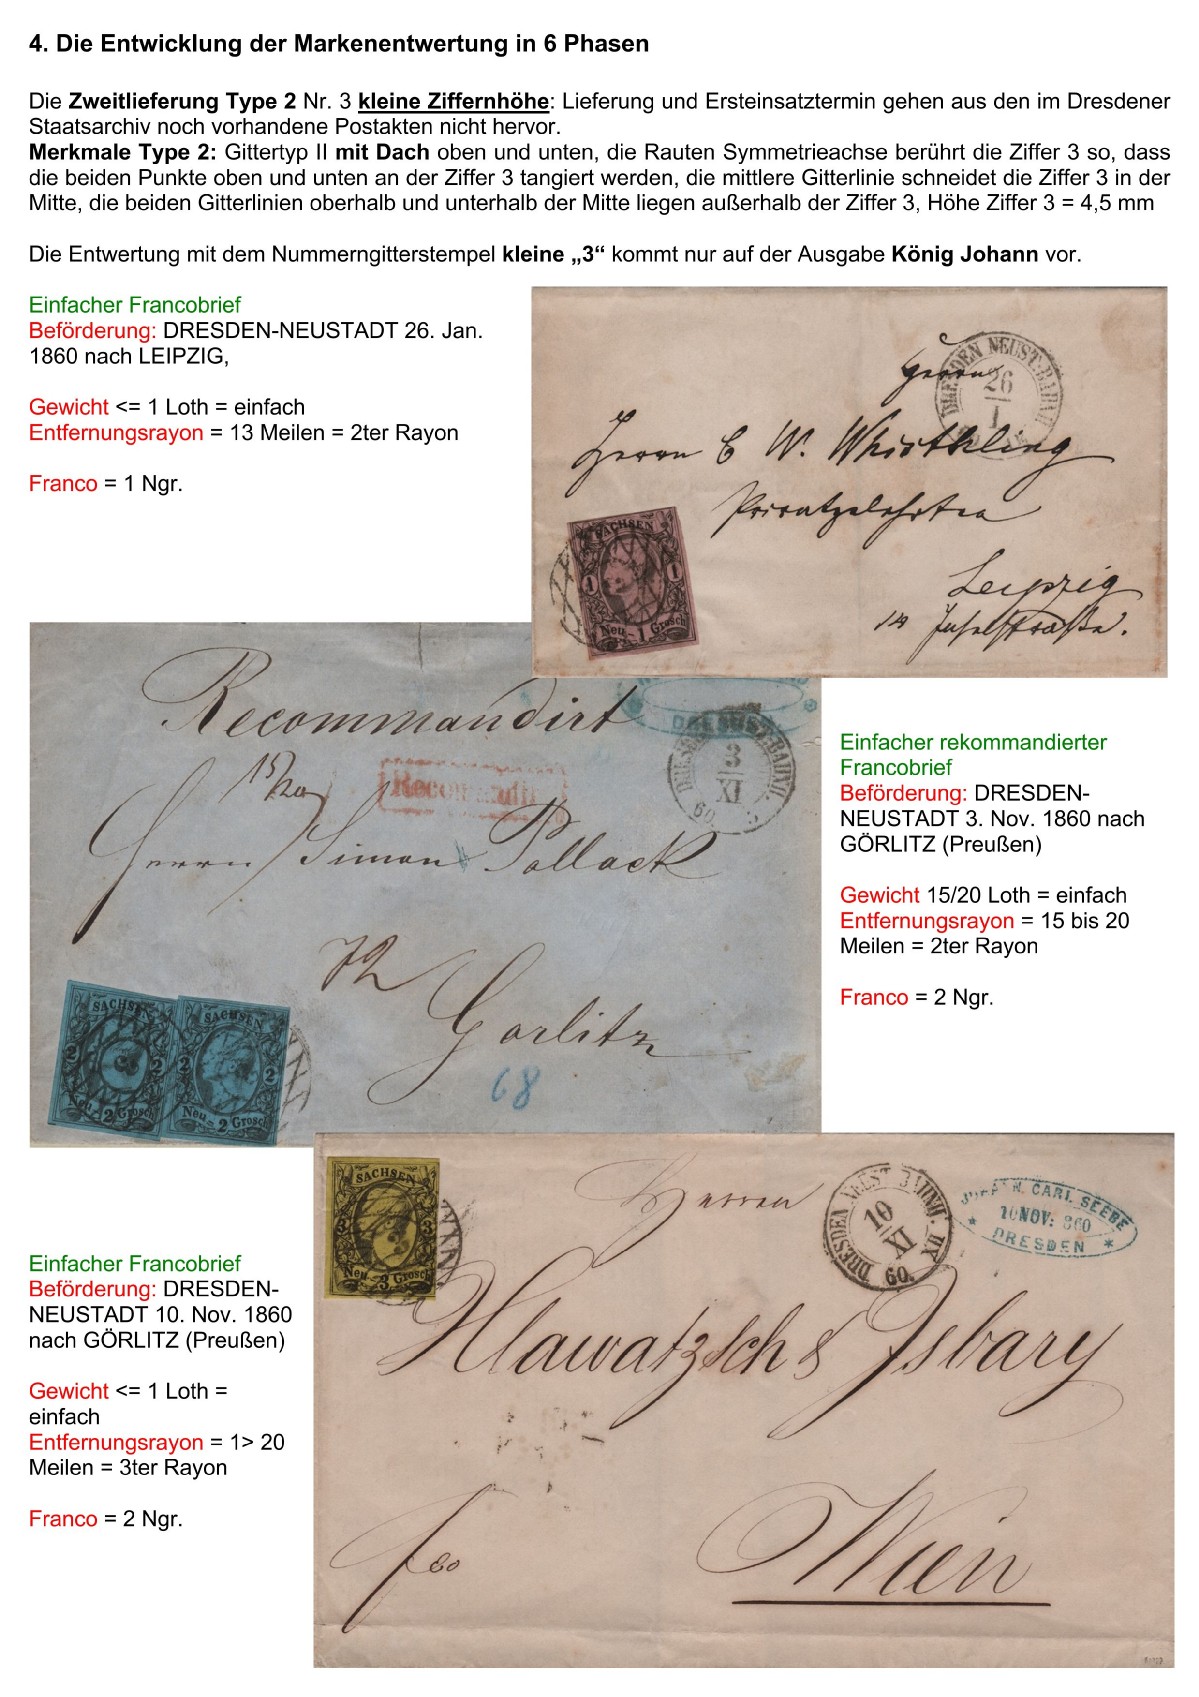 4. Die Entwicklung der Markenentwertung in 6 Phasen
Die Zweitlieferung Type 2 Nr. 3 kleine Ziffernhöhe: Lieferung und Ersteinsatztermin gehen aus den im Dresdener
Staatsarchiv noch vorhandene Postakten nicht hervor.
Merkmale Type 2: Gittertyp II mit Dach oben und unten, die Rauten Symmetrieachse berührt die Ziffer 3 so, dass
die beiden Punkte oben und unten an der Ziffer 3 tangiert werden, die mittlere Gitterlinie schneidet die Ziffer 3 in der
Mitte, die beiden Gitterlinien oberhalb und unterhalb der Mitte liegen außerhalb der Ziffer 3, Höhe Ziffer 3 = 4,5 mm
Die Entwertung mit dem Nummerngitterstempel kleine „3“ kommt nur auf der Ausgabe König Johann vor.
Einfacher Francobrief
Beförderung: DRESDEN-NEUSTADT 26. Jan.
1860 nach LEIPZIG,
Gewicht <= 1 Loth = einfach
Entfernungsrayon = 13 Meilen = 2ter Rayon
Franco = 1 Ngr.
DRESDEN NEUST-BAHNH
26
I
Herrn
Herrn C W. Whistling
Privatgelehrten
Leipzig
Inselstraße.
SACHSEN
1 1
Neu - 1 Grosch
Recommandirt
DRESDEN
Recommandirt
DRESDEN NEUST-BAHNH.
3
XI
60
Herrn Simon Pollack
72
Görlitz
68
SACHSEN
2 2
Neu - 2 Grosch
SACHSEN
2 2
Neu - 2 Grosch
Einfacher rekommandierter
Francobrief
Beförderung: DRESDEN-
NEUSTADT 3. Nov. 1860 nach
GÖRLITZ (Preußen)
Gewicht 15/20 Loth = einfach
Entfernungsrayon = 15 bis 20
Meilen = 2ter Rayon
Franco = 2 Ngr.
Einfacher Francobrief
Beförderung: DRESDEN-
NEUSTADT 10. Nov. 1860
nach GÖRLITZ (Preußen)
Gewicht <= 1 Loth =
einfach
Entfernungsrayon = 1> 20
Meilen = 3ter Rayon
Franco = 2 Ngr.
SACHSEN
3 3
Neu - 3 Grosch
Herren
DRESDEN NEUST BAHNH.
10
XI
60.
JOHANN CARL SEEBE
10 NOV: 860
* DRESDEN *
Hlawatzsch & Isbary
fco
Wien